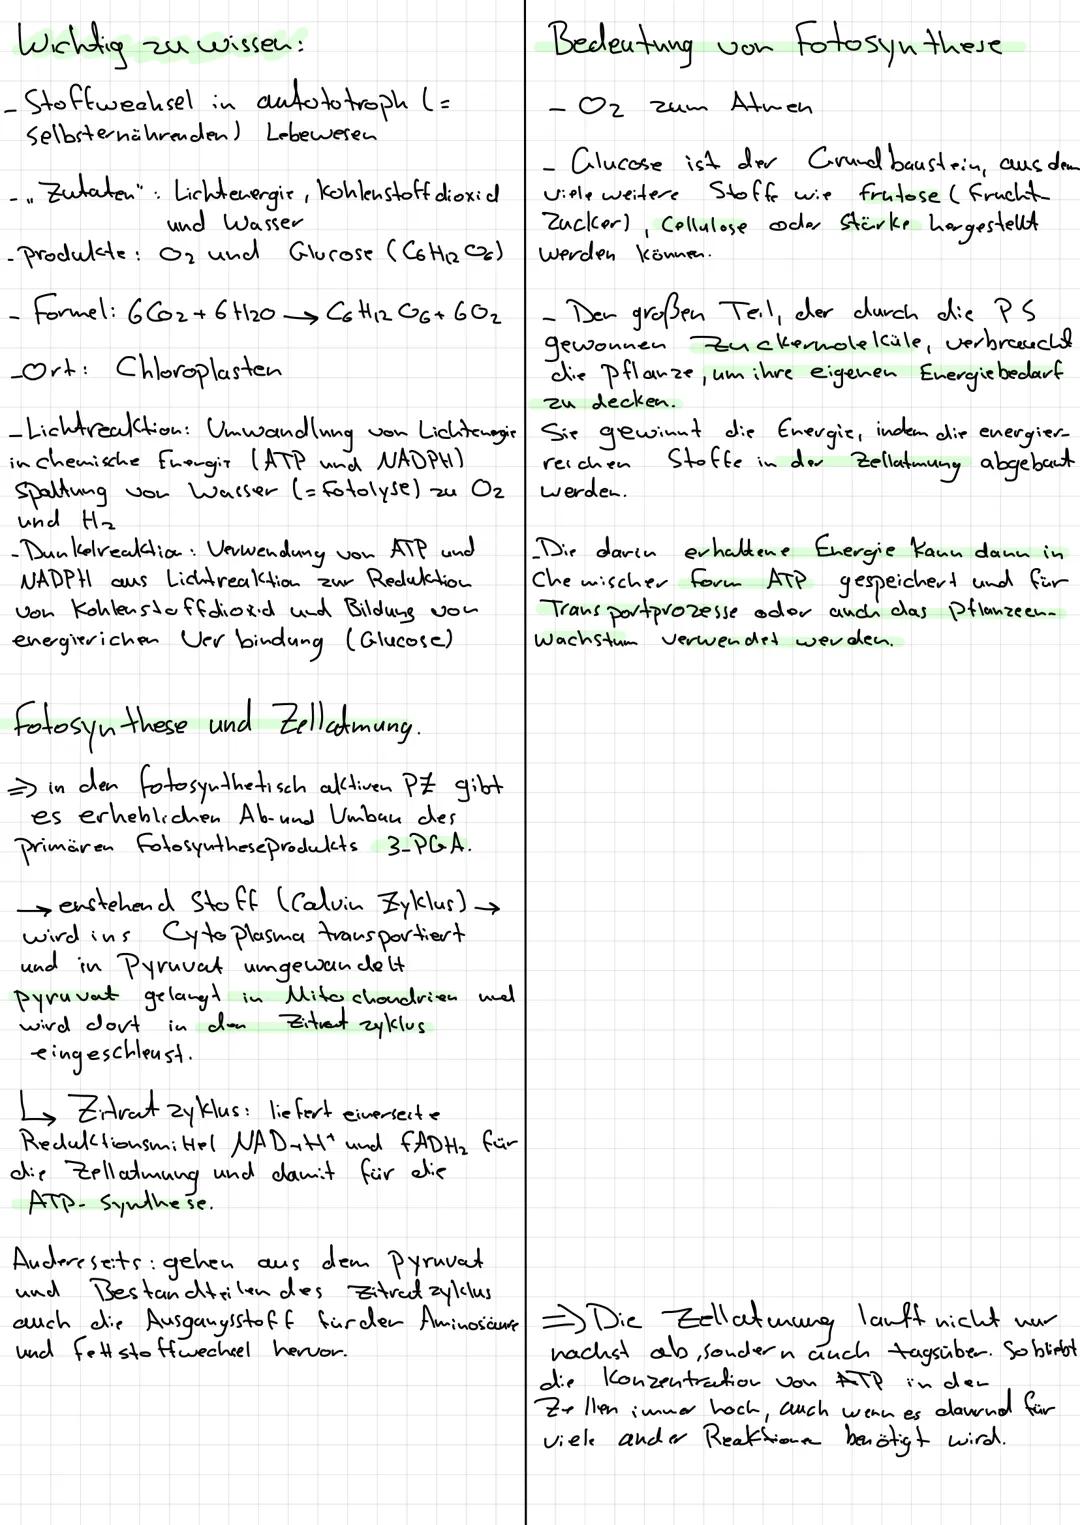 Wichtig zu wissen:
- Stoffwechsel in autototroph (=
selbsternährenden) Lebewesen
- "Zutaten": Lichtenergie, Kohlenstoffdioxid
und Wasser
- Produkte: O2 und Glucose (C6H12O6)
- Formel: 6CO2 + 6H2O → C6H12O6 + 6O2
- Ort: Chloroplasten
- Lichtreaktion: Umwandlung von Lichtenergie
in chemische Energie (ATP und NADPH)
Spaltung von Wasser (= Fotolyse) zu O2
und H2
- Dunkelreaktion: Verwendung von ATP und
NADPH aus Lichtreaktion zur Reduktion
von Kohlenstoffdioxid und Bildung von
energierichen Verbindung (Glucose)
Fotosynthese und Zellatmung.
⇒ in den fotosynthetisch aktiven PZ gibt
es erheblichen Ab- und Umbau des
primären Fotosyntheseprodukts 3-PGA.
→ enstehend Stoff (Calvin Zyklus) →
wird ins Cytoplasma transportiert
und in Pyruvat umgewandelt
pyruvat gelangt in Mitochondrien und
wird dort in den Zitrat zyklus
eingeschleust.
↳ Zitrat zyklus: liefert einerseite
Reduktionsmittel NAD+H+ und FADH2 für
die Zellatmung und damit für die
ATP- Synthese.
Andereseits: gehen aus dem Pyruvat
und Bestandteilen des Zitrat zyklus
auch die Ausgangsstoff für den Aminosäure
und Fettstoffwechsel hervor.
Bedeutung von Fotosynthese
- O2 zum Atmen
- Glucose ist der Grundbaustein, aus dem
viele weitere Stoffe wie frutose (Frucht-
Zucker), Cellulose oder Stärke hergestellt
werden können.
- Den großen Teil, der durch die PS
gewonnen Zuckermoleküle, verbraucht
die Pflanze, um ihre eigenen Energiebedarf
zu decken.
Sie gewinnt die Energie, indem die energier-
reichen Stoffe in der Zellatmung abgebaut
werden.
- Die darin erhaltene Energie kann dann in
Chemischer Form ATP gespeichert und für
Transportprozesse oder auch das Pflanzeen-
Wachstum verwendet werden.
⇒ Die Zellatmung lauft nicht nur
nachst ab, sondern auch tagsüber. So bliebt
die Konzentration von ATP in den
Zellen immer hoch, auch wenn es dauernd für
viele ander Reaktionen benötigt wird.